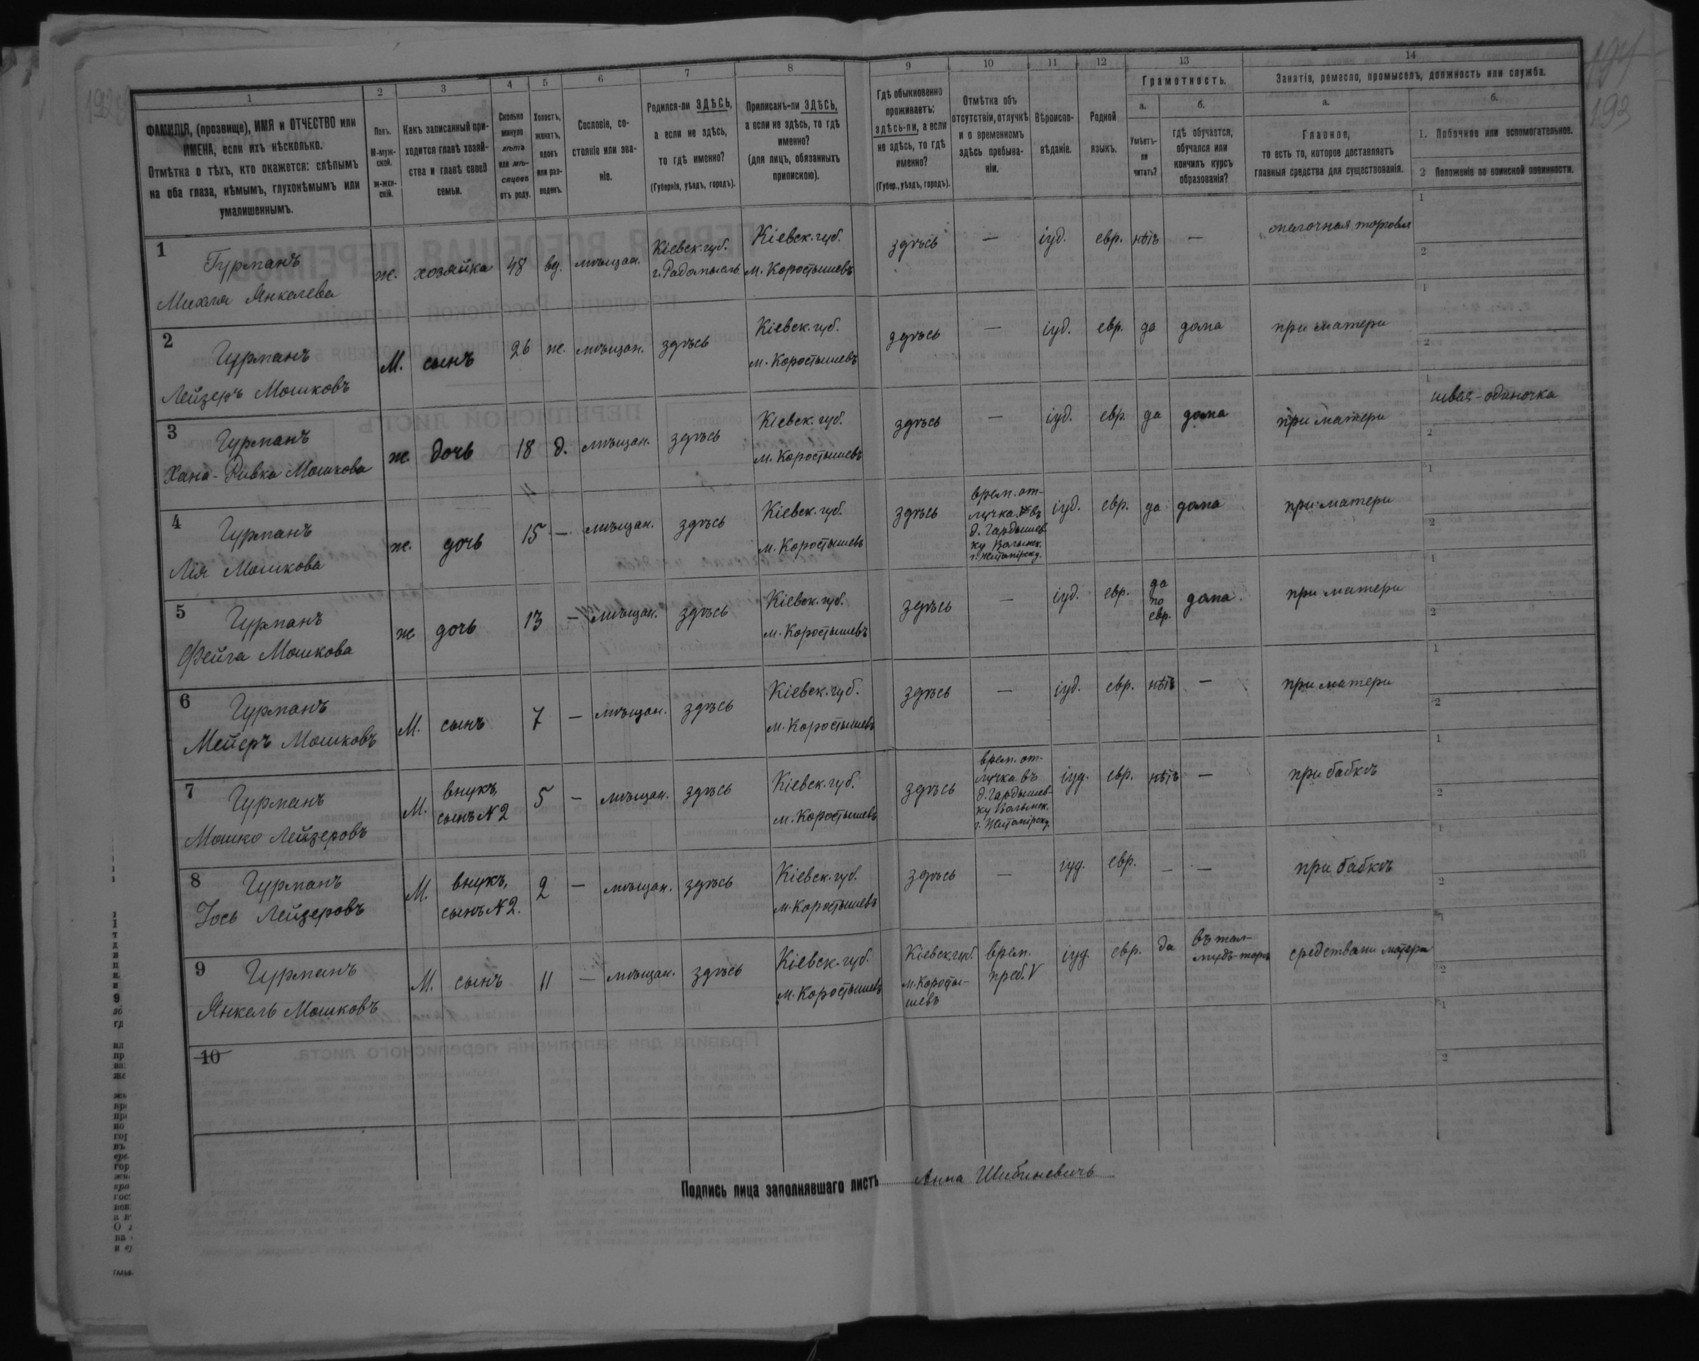 194
193
1 2 3 4 5 6 7 8 9 10 11 12 13 14
ФАМИЛІЯ, (прозвище), ИМЯ и ОТЧЕСТВО или
ИМЕНА, если ихъ нѣсколько.
Отмѣтка о тѣхъ, кто окажется: слѣпымъ
на оба глаза, нѣмымъ, глухонѣмымъ или
умалишеннымъ.
Полъ.
М-муж-
ской.
ж-жен-
скій.
Какъ записанный при-
ходится главѣ хозяй-
ства и главѣ своей
семьи.
Сколько
минуло
лѣтъ
или мѣ-
сяцевъ
отъ роду.
Холостъ,
женатъ,
вдовъ
или раз-
веденъ.
Сословіе, со-
стояніе или зва-
ніе.
Родился-ли ЗДѢСЬ,
а если не здѣсь,
то гдѣ именно?
(Губернія, уѣздъ, городъ).
Приписанъ-ли ЗДѢСЬ,
а если не здѣсь, то гдѣ
именно?
(для лицъ, обязанныхъ
припискою).
Гдѣ обыкновенно
проживаетъ:
здѣсь-ли, а если
не здѣсь, то гдѣ
именно?
(Губер., уѣздъ, городъ).
Отмѣтка объ
отсутствіи, отлучкѣ
и о временномъ
здѣсь пребыва-
ніи.
Вѣроиспо-
вѣданіе.
Родной
языкъ.
Грамотность.
а.
Умѣетъ-
ли
читать?
б.
гдѣ обучается,
обучался или
кончилъ курсъ
образованія?
Занятіе, ремесло, промыселъ, должность или служба.
а.
Главное,
то есть то, которое доставляетъ
главныя средства для существованія.
б.
1. Побочное или вспомогательное.
2 Положеніе по воинской повинности.
1 Гурманъ
Михля Янкелева
ж. хозяйка 48 вд. мѣщан.
Кіевск. губ.
г. Радомысль
Кіевск. губ.
м. Коростышевъ
здѣсь — іуд. евр. нѣтъ — мелочная торговля
1
2
2 Гурманъ
Лейзеръ Мошковъ
М. сынъ 26 ж. мѣщан. здѣсь
Кіевск. губ.
м. Коростышевъ
здѣсь — іуд. евр. да дома при матери
1
2
3 Гурманъ
Хана-Ривка Мошкова
ж. дочь 18 д. мѣщан. здѣсь
Кіевск. губ.
м. Коростышевъ
здѣсь — іуд. евр да дома при матери
1 швея-одиночка
2
4 Гурманъ
Лія Мошкова
ж. дочь 15 — мѣщан. здѣсь
Кіевск. губ.
м. Коростышевъ
здѣсь
врем. от-
лучка въ
д. Гардышев
ку Волынск.
г. Житомірск у.
іуд. евр. да дома при матери
1
2
5 Гурманъ
Фейга Мошкова
ж дочь 13 — мѣщан. здѣсь
Кіевск. губ.
м. Коростышевъ
здѣсь — іуд. евр.
да
по
евр.
дома при матери
1
2
6 Гурманъ
Мейеръ Мошковъ
М. сынъ 7 — мѣщан. здѣсь
Кіевск. губ.
м. Коростышевъ
здѣсь — іуд. евр. нѣтъ — при матери
1
2
7 Гурманъ
Мошко Лейзеровъ
М.
внукъ
сынъ №2
5 — мѣщан. здѣсь
Кіевск. губ.
м. Коростышевъ
здѣсь
врем. от-
лучка въ
д. Гардышев
ку Волынск.
г. Житомірск у.
іуд. евр. нѣтъ — при бабкѣ
1
2
8 Гурманъ
Іось Лейзеровъ
М.
внукъ,
сынъ №2.
2 — мѣщан. здѣсь
Кіевск. губ.
м. Коростышевъ
здѣсь — іуд. евр. — — при бабкѣ
1
2
9 Гурманъ
Янкель Мошковъ
М. сынъ 11 — мѣщан. здѣсь
Кіевск. губ.
м. Коростышевъ
Кіевск. губ.
м. Коросты-
шевъ
врем.
преб. V
іуд. евр. да
въ тал-
мудъ-торѣ
средствами матери
1
2
10
1
2
Подпись лица заполнявшаго листъ Анна Шибиневичъ